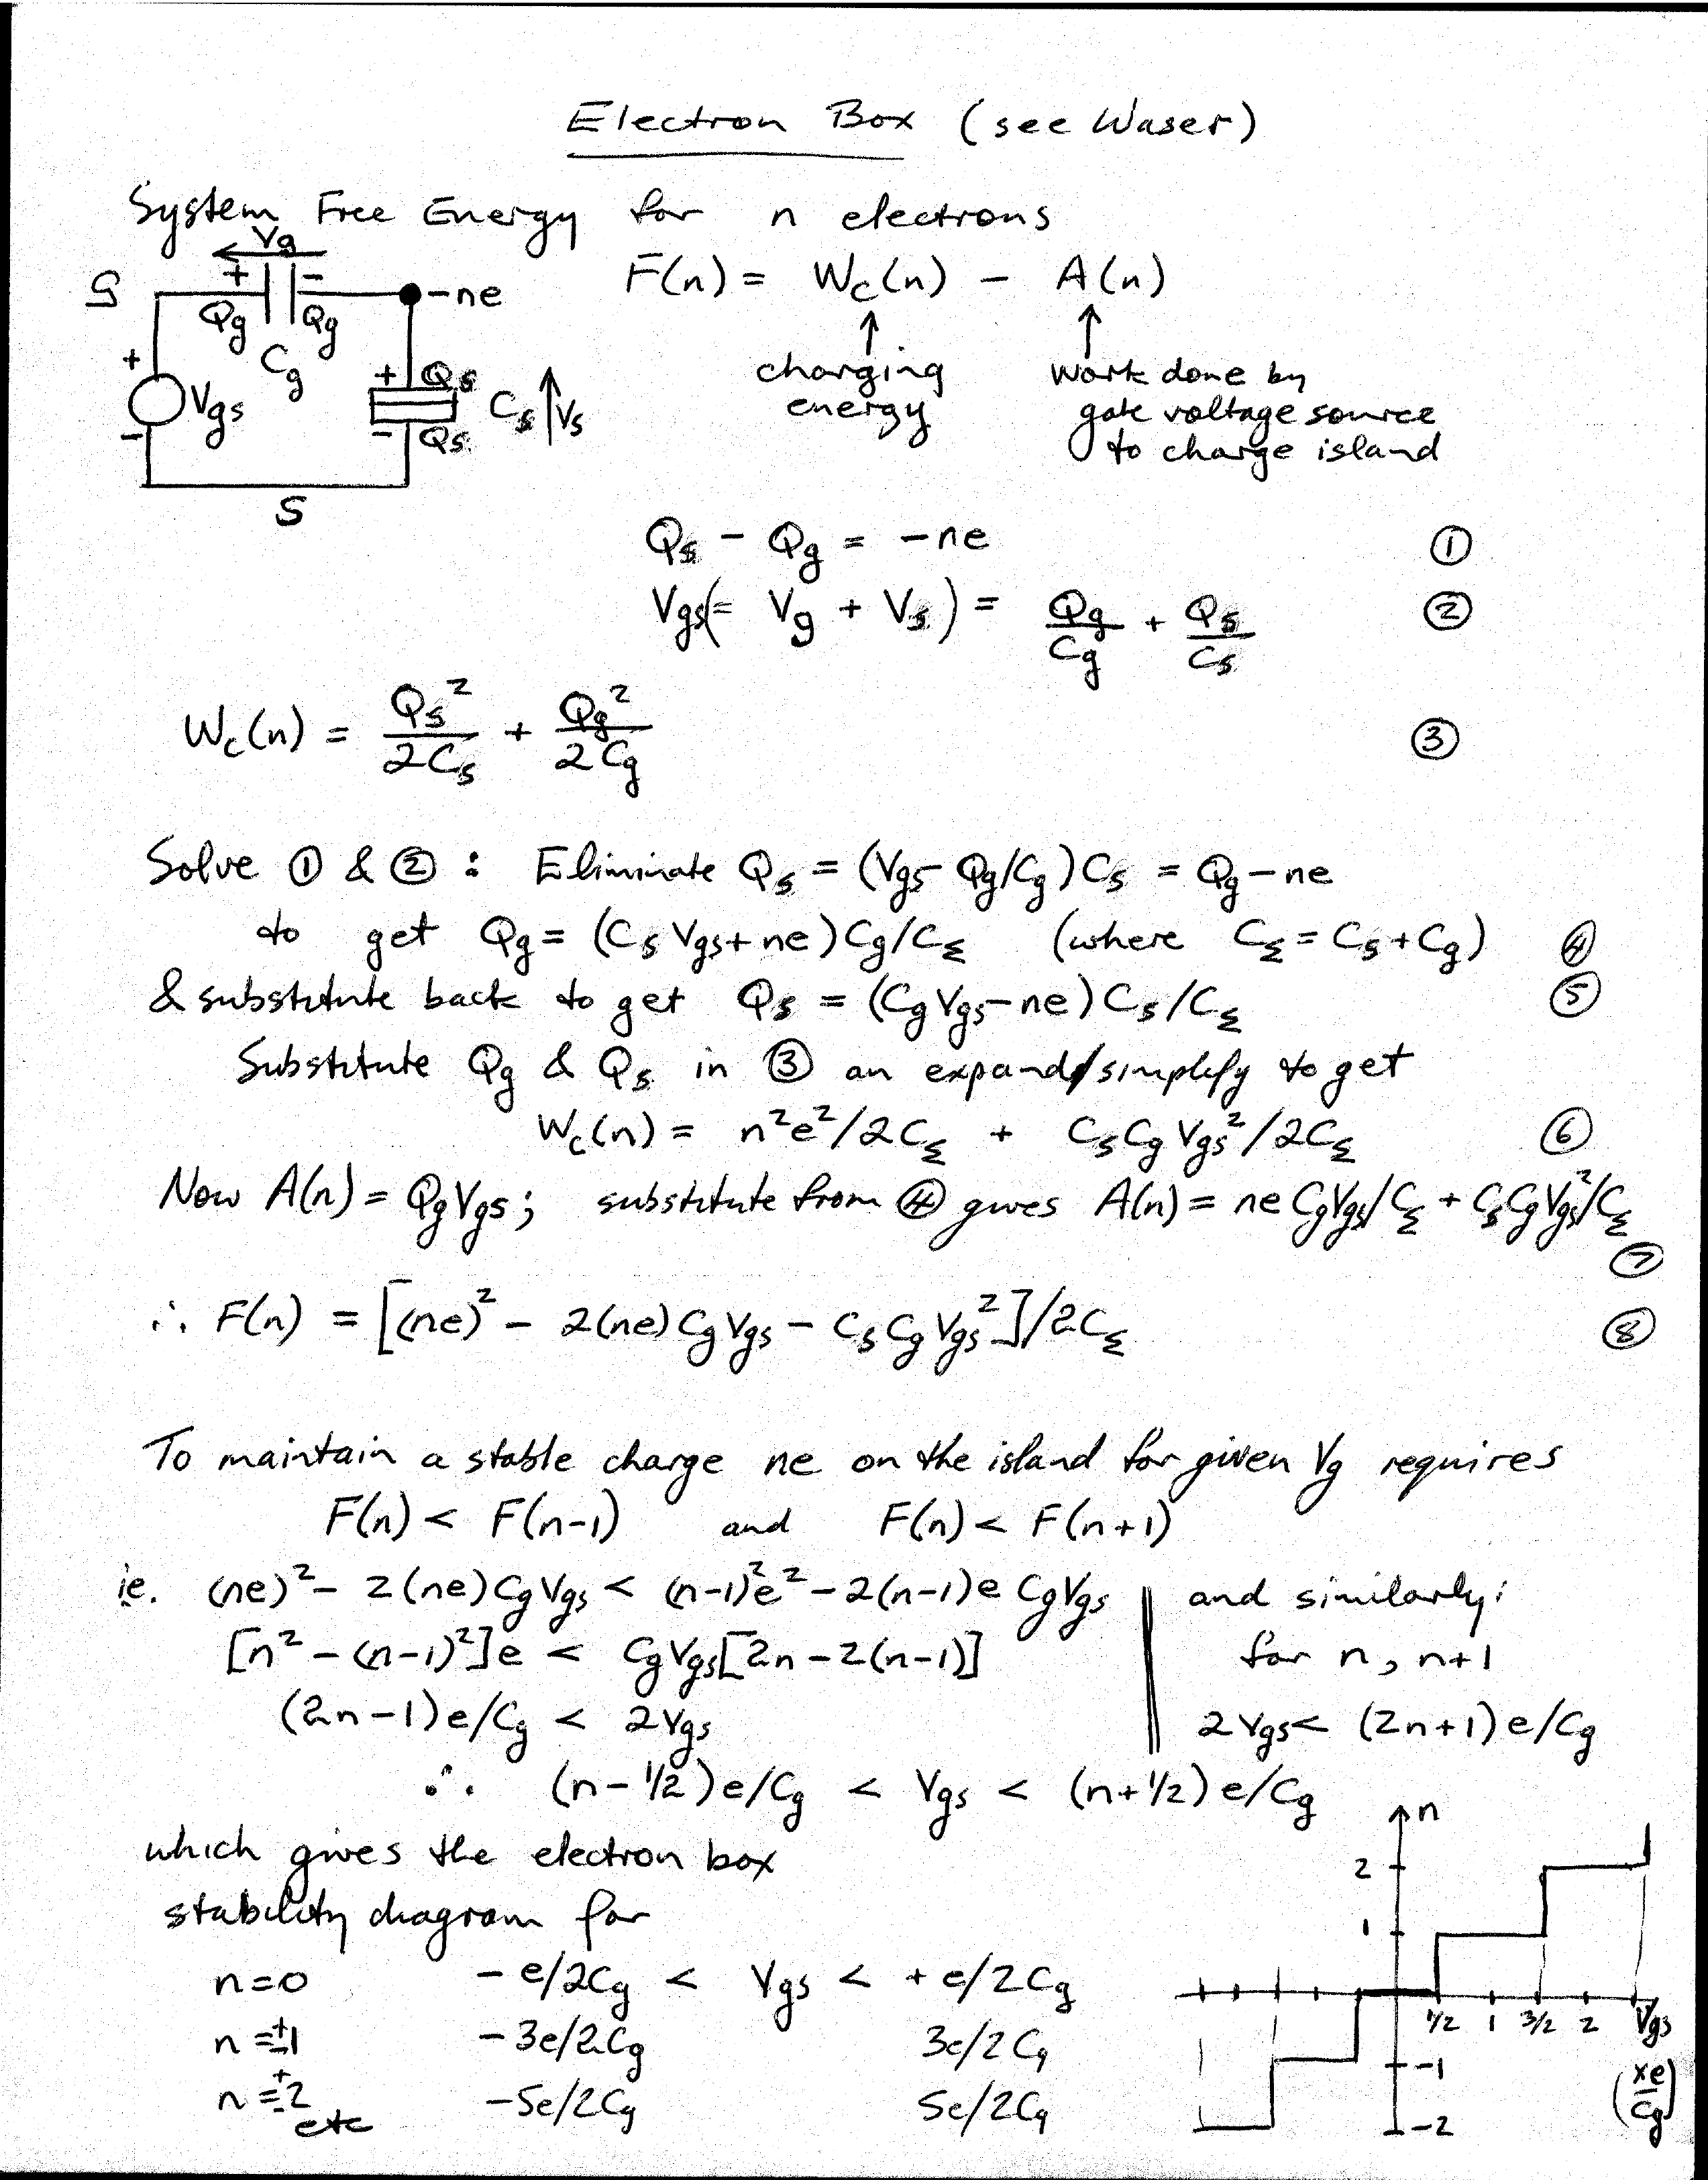 Electron Box (see Waser)
System Free Energy for n electrons
F(n) = Wc(n) - A(n)
↑ charging energy
↑ work done by gate voltage source to charge island
Vg
G
+ -
-ne
Qg Qg
Cg
+
Vgs
-
+ Qs
Cs Vs
- Qs
S
Qs - Qg = -ne ①
Vgs(= Vg + Vs) = Qg/Cg + Qs/Cs ②
Wc(n) = Qs²/2Cs + Qg²/2Cg ③
Solve ① & ② : Eliminate Qs = (Vgs - Qg/Cg)Cs = Qg - ne
to get Qg = (Cs Vgs + ne)Cg/CΣ (where CΣ = Cs + Cg) ④
& substitute back to get Qs = (Cg Vgs - ne)Cs/CΣ ⑤
Substitute Qg & Qs in ③ an expand/simplify to get
Wc(n) = n²e²/2CΣ + CsCgVgs²/2CΣ ⑥
Now A(n) = QgVgs; substitute from ④ gives A(n) = ne CgVgs/CΣ + CsCgVgs²/CΣ
⑦
∴ F(n) = [(ne)² - 2(ne)CgVgs - CsCgVgs²]/2CΣ ⑧
To maintain a stable charge ne on the island for given Vg requires
F(n) < F(n-1) and F(n) < F(n+1)
ie. (ne)² - 2(ne)CgVgs < (n-1)²e² - 2(n-1)e CgVgs and similarly:
[n² - (n-1)²]e < CgVgs[2n - 2(n-1)] for n, n+1
(2n-1)e/Cg < 2Vgs 2Vgs < (2n+1)e/Cg
∴ (n-1/2)e/Cg < Vgs < (n+1/2)e/Cg
which gives the electron box
stability diagram for
n=0 -e/2Cg < Vgs < +e/2Cg
n=±1 -3e/2Cg 3e/2Cg
n=±2 -5e/2Cg 5e/2Cg
etc
n
2
1
1/2 1 3/2 2 Vgs
-1
(xe/Cg)
-2